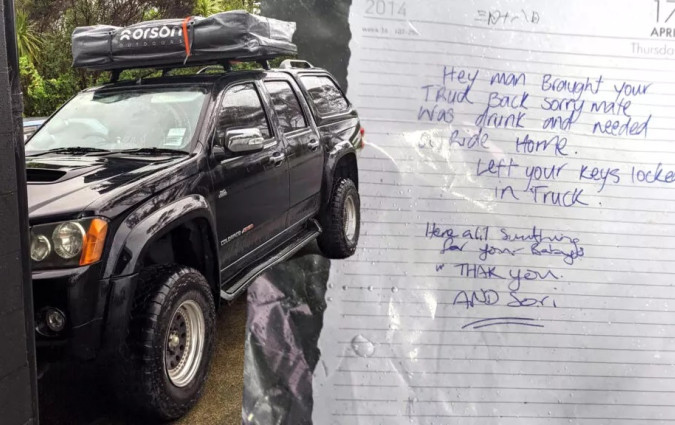 Rorson
OUTDOORS
COLORADO
2014
17
APRIL
Thursda
Hey man Braught your
Truck Back sorry mate
Was drunk and needed
a Ride Home.
Left your Keys locke
in Truck.
Here a lil sumthing
for your
" THAK you.
AND Sori